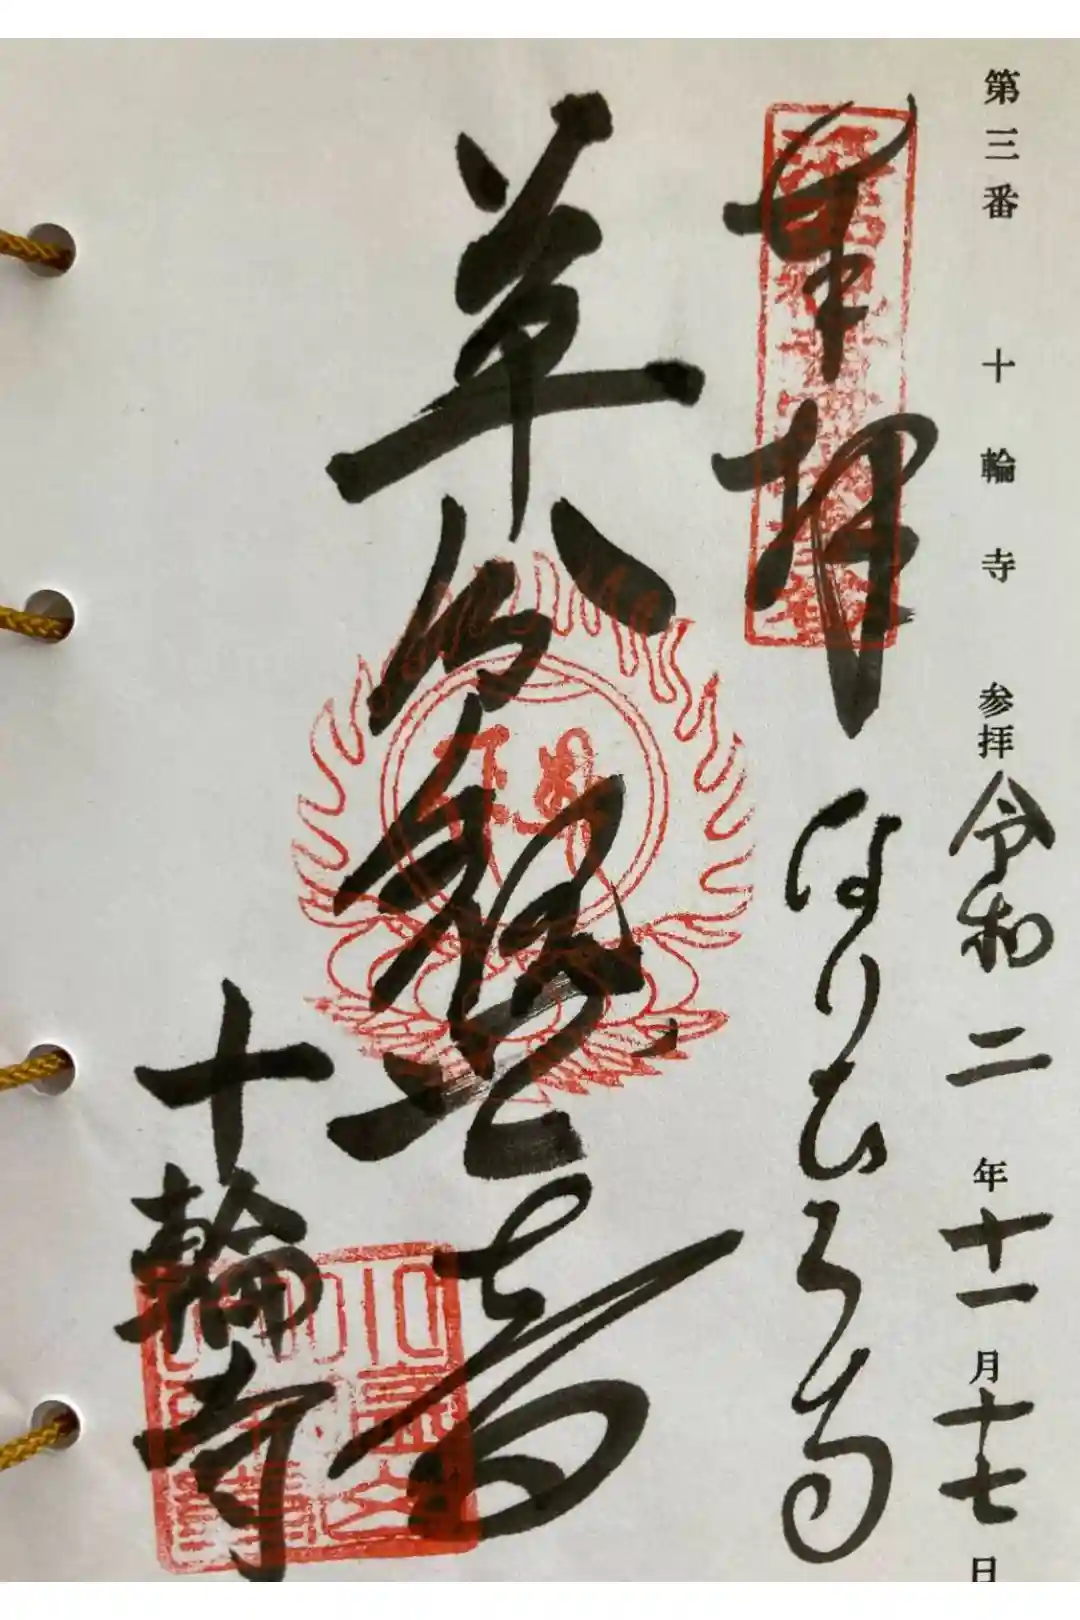 第三番 十輪寺 参拝 令和二年十一月十七日
奉拝 なりひら寺
草分観世音
十輪寺